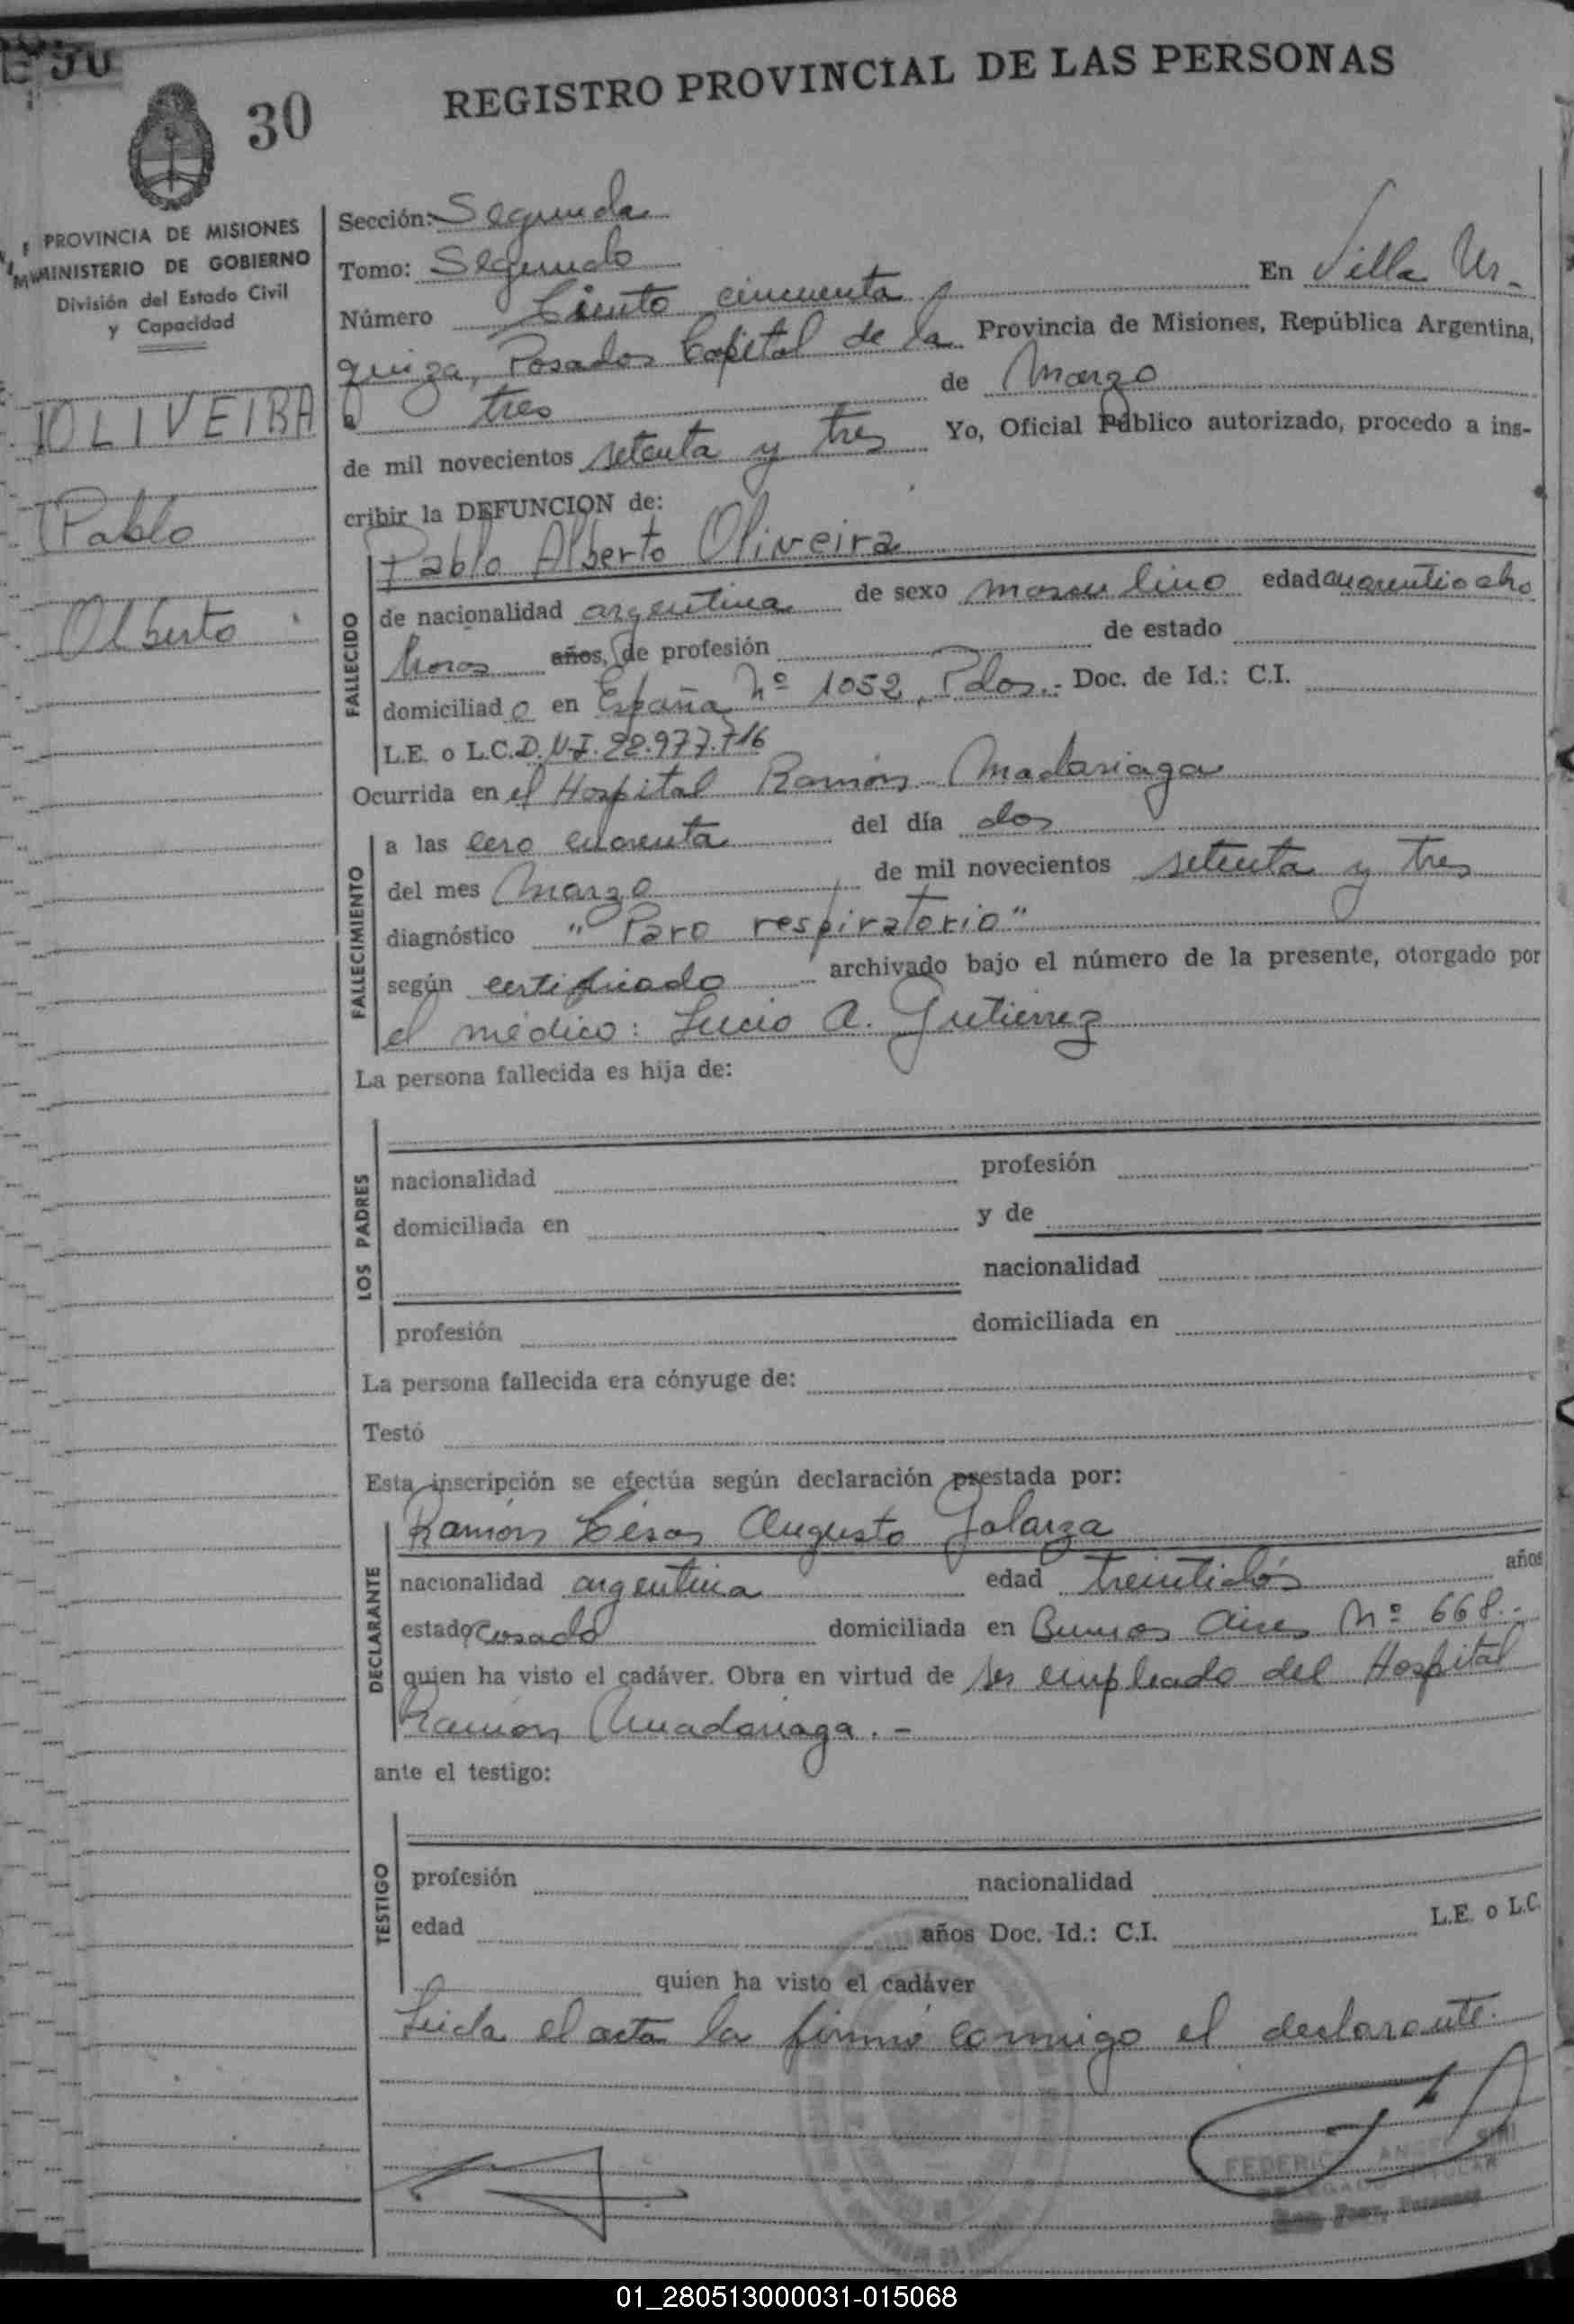 30
REGISTRO PROVINCIAL DE LAS PERSONAS
PROVINCIA DE MISIONES
MINISTERIO DE GOBIERNO
División del Estado Civil
y Capacidad
OLIVEIRA
Pablo
Alberto
Sección: Segunda
Tomo: Segundo
Número Ciento cincuenta En Villa Ur-
quiza, Posadas Capital de la Provincia de Misiones, República Argentina,
a tres de Marzo
de mil novecientos setenta y tres Yo, Oficial Público autorizado, procedo a ins-
cribir la DEFUNCION de:
FALLECIDO
Pablo Alberto Oliveira
de nacionalidad argentina de sexo masculino edad cuarentiocho
horas años, de profesión de estado
domiciliado en España Nº 1052, Pdas.- Doc. de Id.: C.I.
L.E. o L.C. D.N.I. 22.977.716
Ocurrida en el Hospital Ramón Madariaga
FALLECIMIENTO
a las cero cuarenta del día dos
del mes Marzo de mil novecientos setenta y tres
diagnóstico "Paro respiratorio"
según certificado archivado bajo el número de la presente, otorgado por
el médico: Lucio A. Gutierrez
La persona fallecida es hija de:
LOS PADRES
nacionalidad profesión
domiciliada en y de
nacionalidad
profesión domiciliada en
La persona fallecida era cónyuge de:
Testó
Esta inscripción se efectúa según declaración prestada por:
DECLARANTE
Ramón César Augusto Galarza
nacionalidad argentina edad treintidós años
estado casado domiciliada en Buenos Aires Nº 668.-
quien ha visto el cadáver. Obra en virtud de ser empleado del Hospital
Ramón Madariaga.-
ante el testigo:
TESTIGO
profesión nacionalidad
edad años Doc. Id.: C.I. L.E. o L.C.
quien ha visto el cadáver
Leida el acta la firmó conmigo el declarante.
FEDERICO ANGEL
01_280513000031-015068